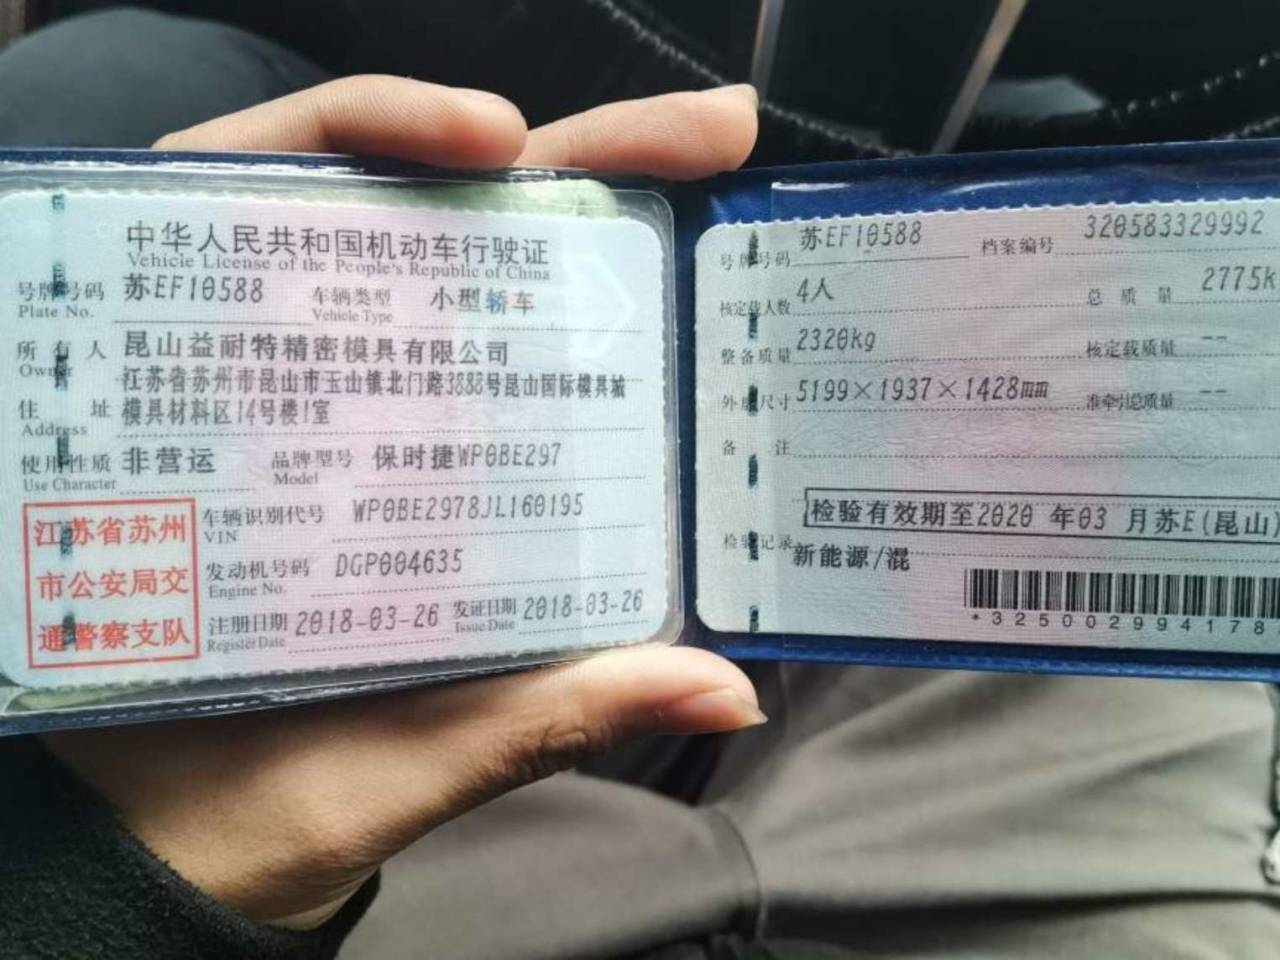 中华人民共和国机动车行驶证
Vehicle License of the People's Republic of China
号牌号码 苏EF10588 车辆类型 小型轿车
Plate No. Vehicle Type
所有人 昆山益耐特精密模具有限公司
Owner
江苏省苏州市昆山市玉山镇北门路3888号昆山国际模具城
住址 模具材料区14号楼1室
Address
使用性质 非营运 品牌型号 保时捷WP0BE297
Use Character Model
江苏省苏州
市公安局交
通警察支队
车辆识别代号 WP0BE2978JL160195
VIN
发动机号码 DGP004635
Engine No.
注册日期 2018-03-26 发证日期 2018-03-26
Register Date Issue Date
号牌号码 苏EF10588 档案编号 320583329992
核定载人数 4人 总质量 2775k
整备质量 2320kg 核定载质量 --
外廓尺寸 5199×1937×1428mm 准牵引总质量 --
备注
检验有效期至2020 年03 月苏E(昆山)
检验记录 新能源/混
*325002994178